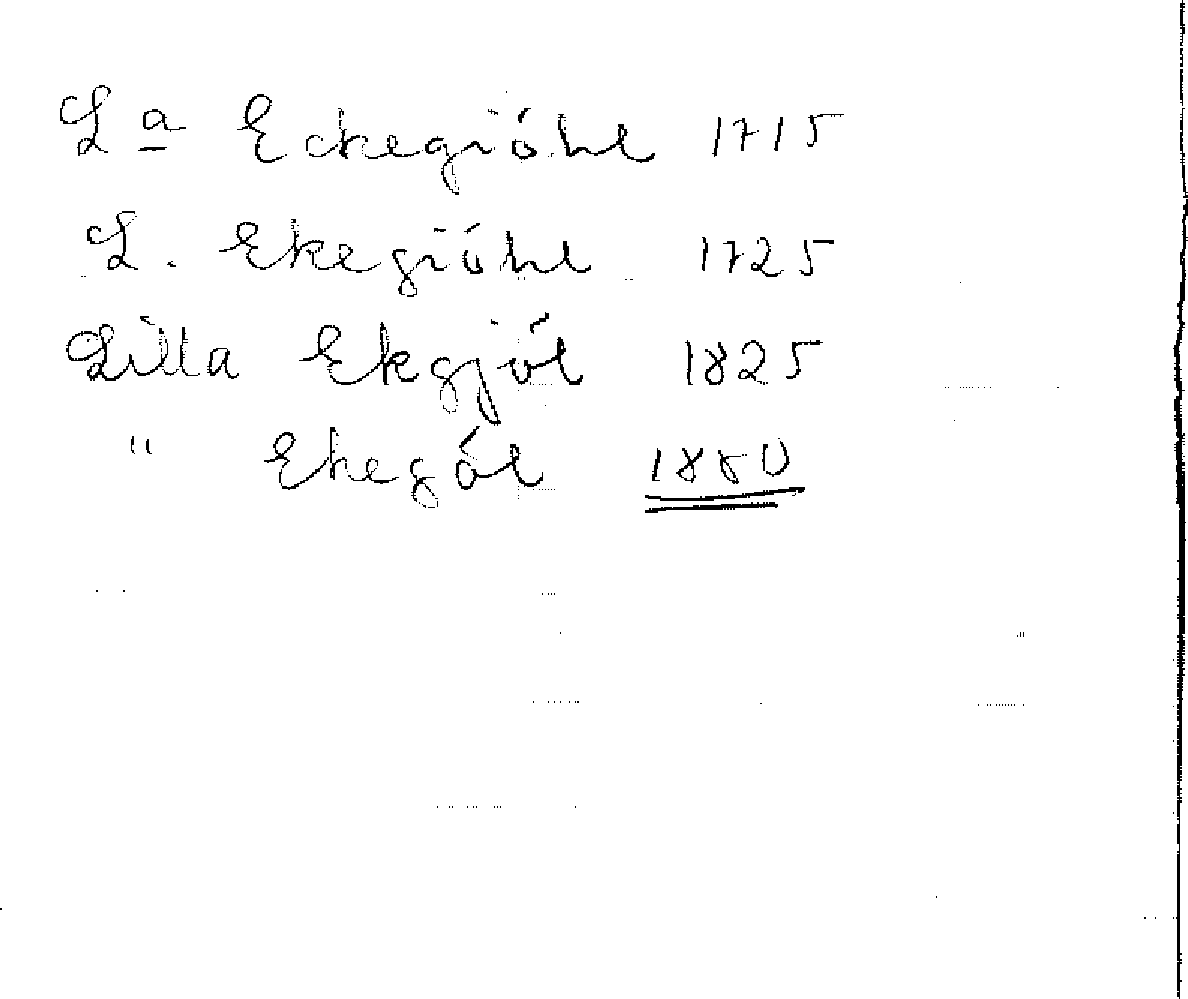 La Eckegiöhl 1715
L. Ekegiöhl 1725
Lilla Ekgjöl 1825
" Ekegöl 1880